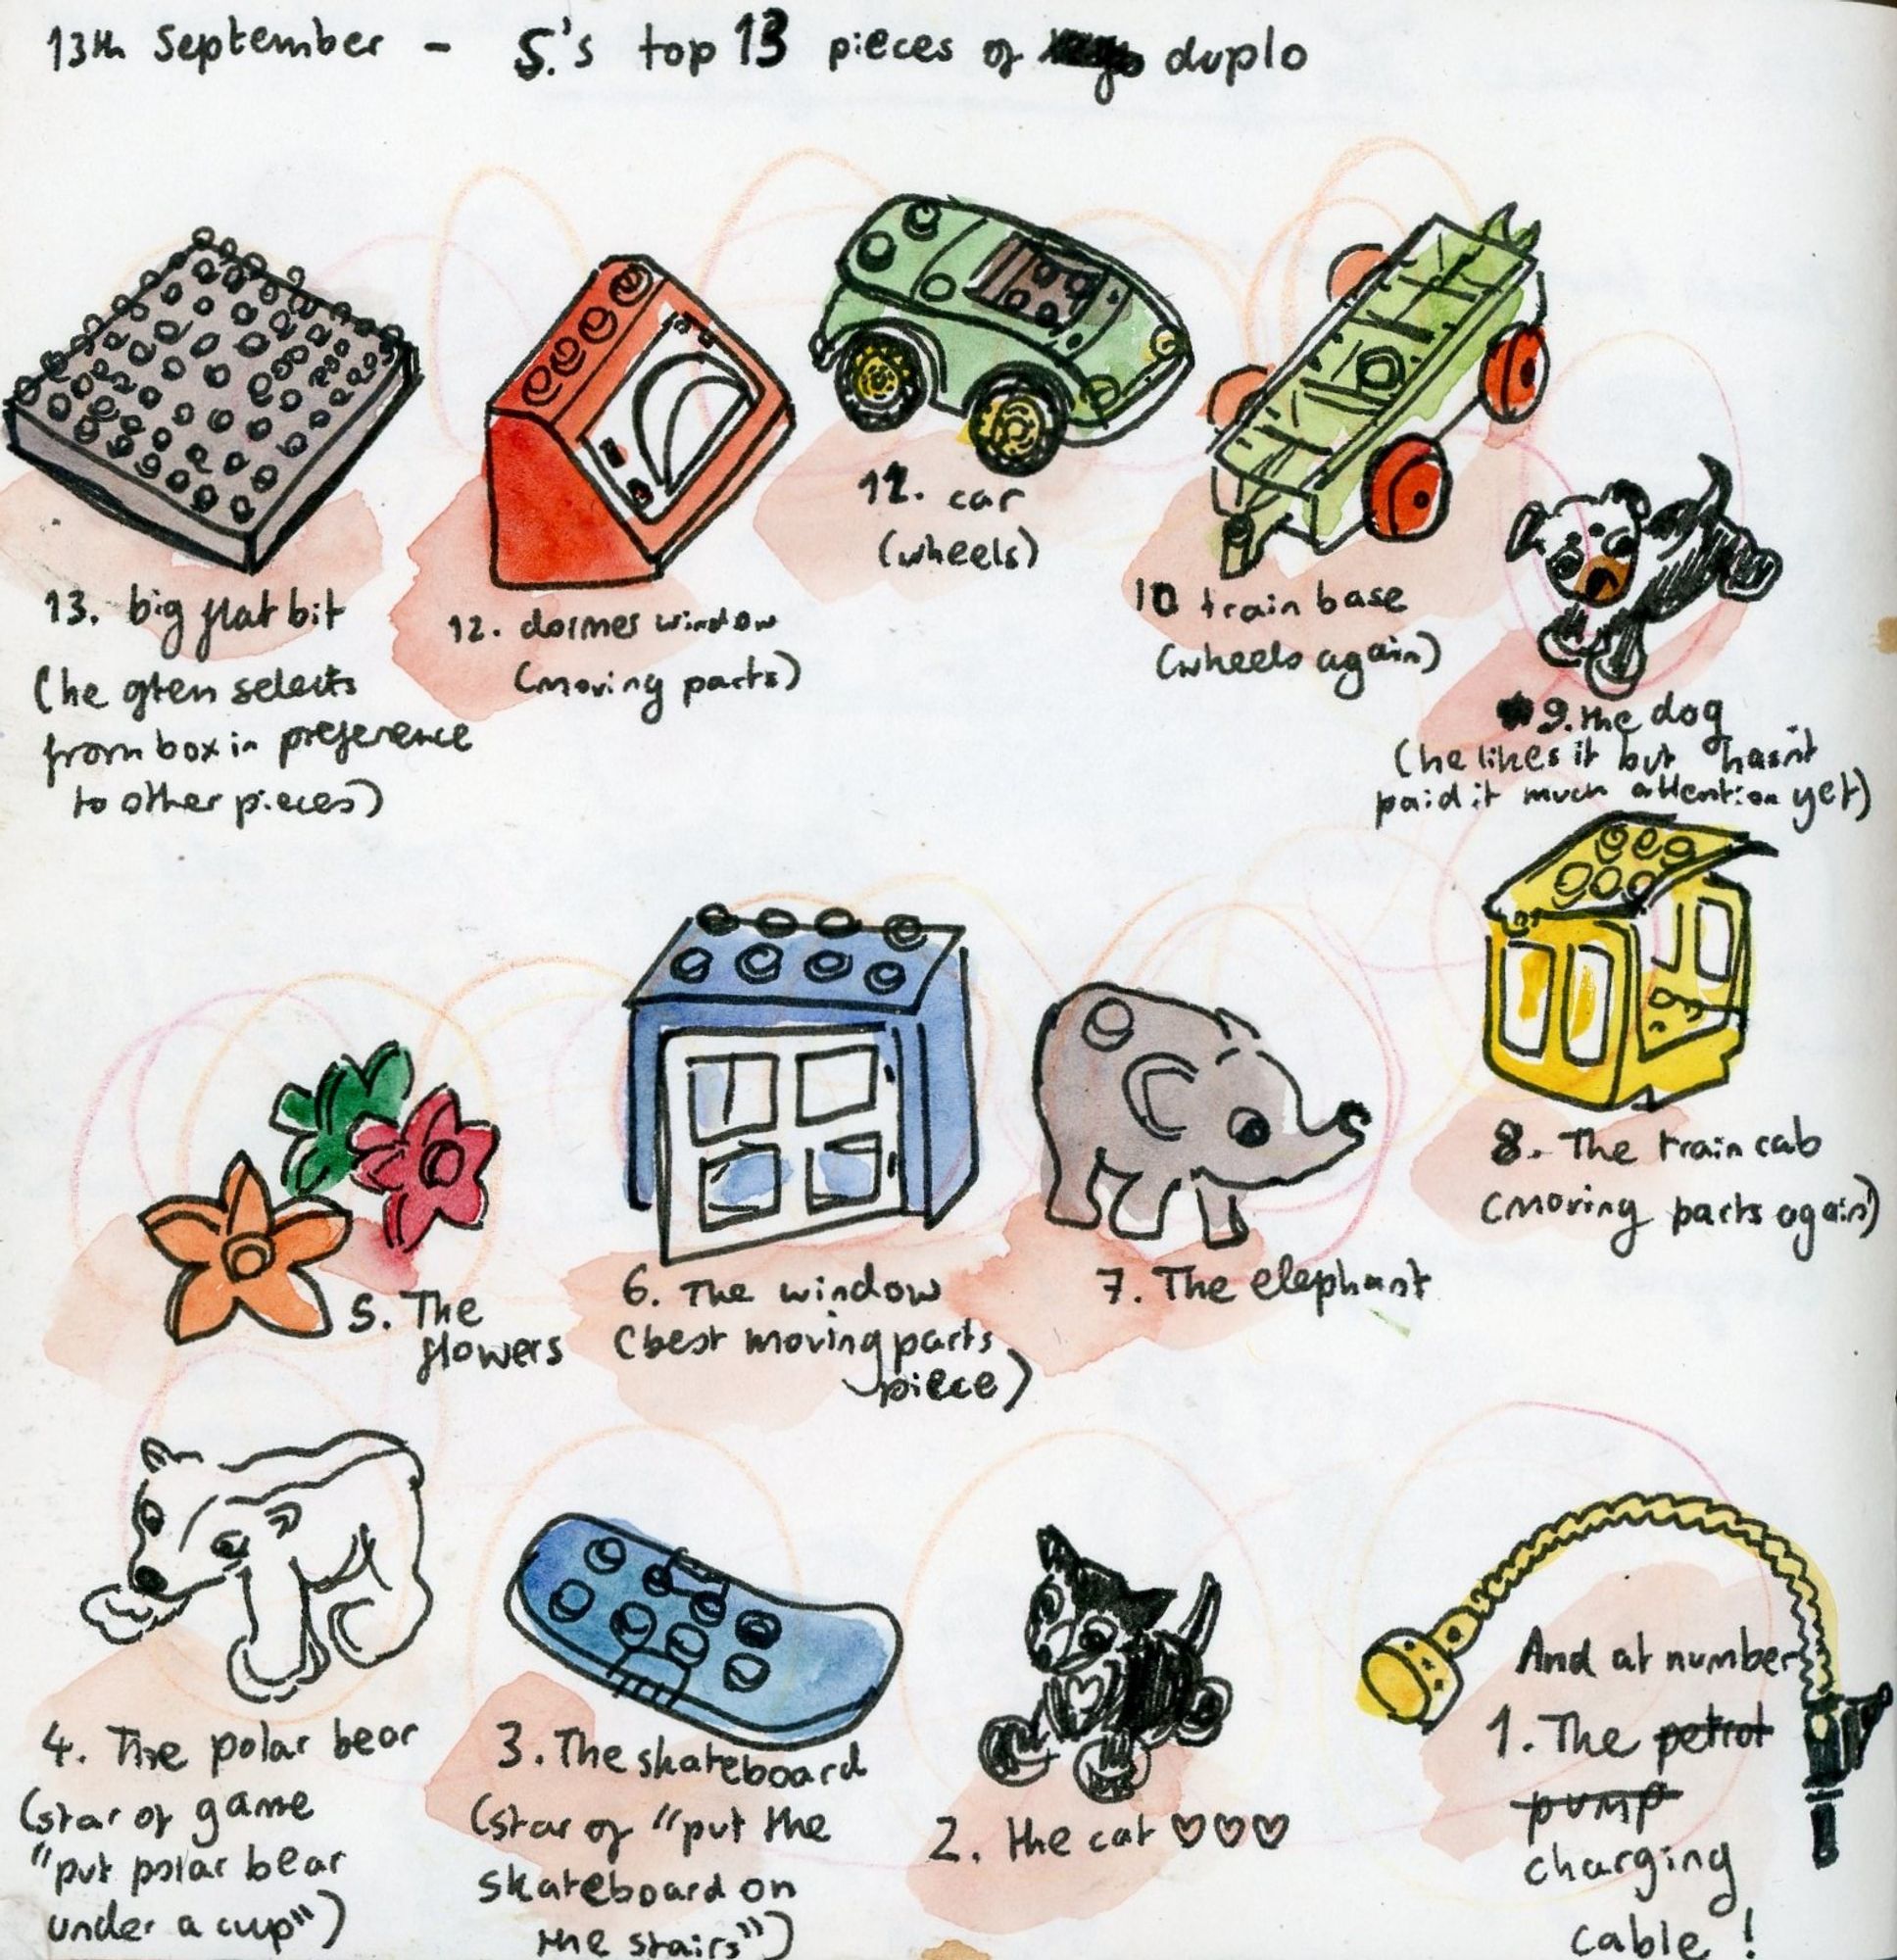 13th September - S.'s top 13 pieces of duplo
13. big flat bit
(he often selects
from box in preference
to other pieces)
12. dormer window
(moving parts)
11. car
(wheels)
10 train base
(wheels again)
9. the dog
(he likes it but hasn't
paid it much attention yet)
8. The train cab
(moving parts again)
7. The elephant
6. The window
(best moving parts
piece)
5. The
flowers
4. The polar bear
(star of game
"put polar bear
under a cup")
3. The skateboard
(star of "put the
skateboard on
the stairs")
2. the cat ♡♡♡
And at number
1. The petrol
pump
charging
cable!